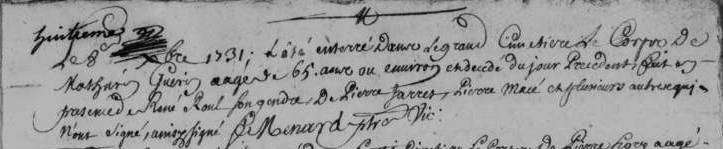 huitieme
Le 8e xbre 1731; a été enterré Dans le grand Cimetiere le Corps De
Mathurin Guerin aagé de 65. ans ou environ et decedé du jour Precedent, fait en
presence de René Roul son gendre, De Pierre Jarret, Pierre Macé et plusieurs autres qui
n'ont signé, ainsy signé P. Menard ptre Vic: